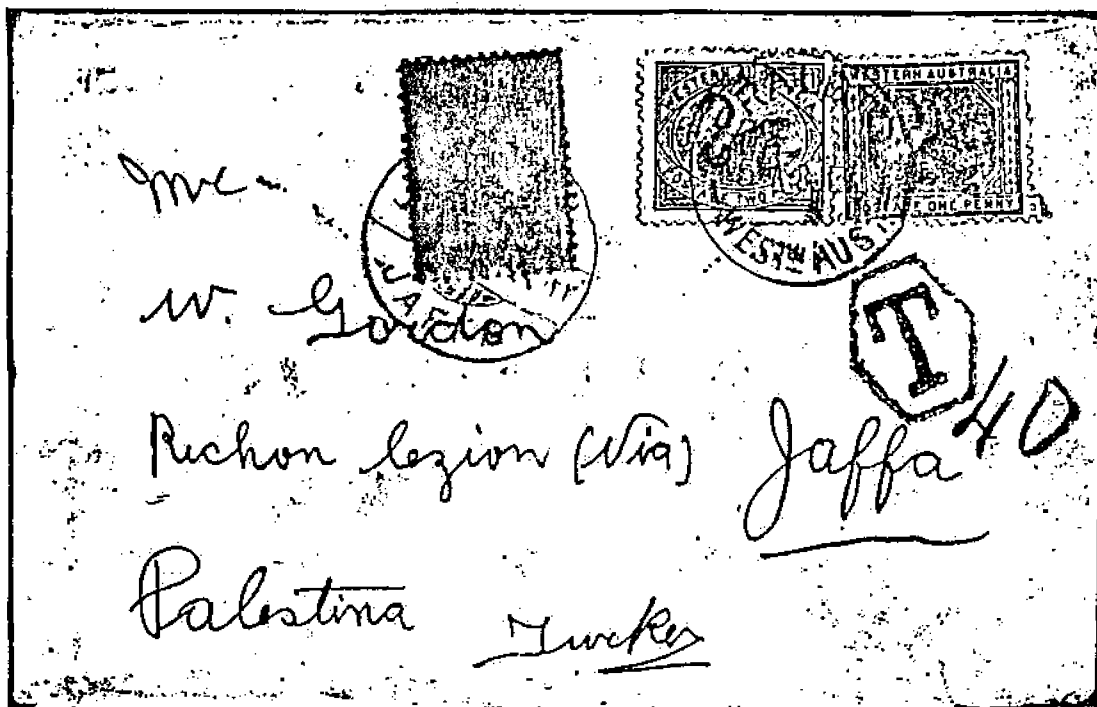 WESTERN AUSTRALIA
TWO
ONE PENNY
WESTN AUST
JAFFA
T
40
W. Gordon
Richon lezion (Via) Jaffa
Palestina
Turkey